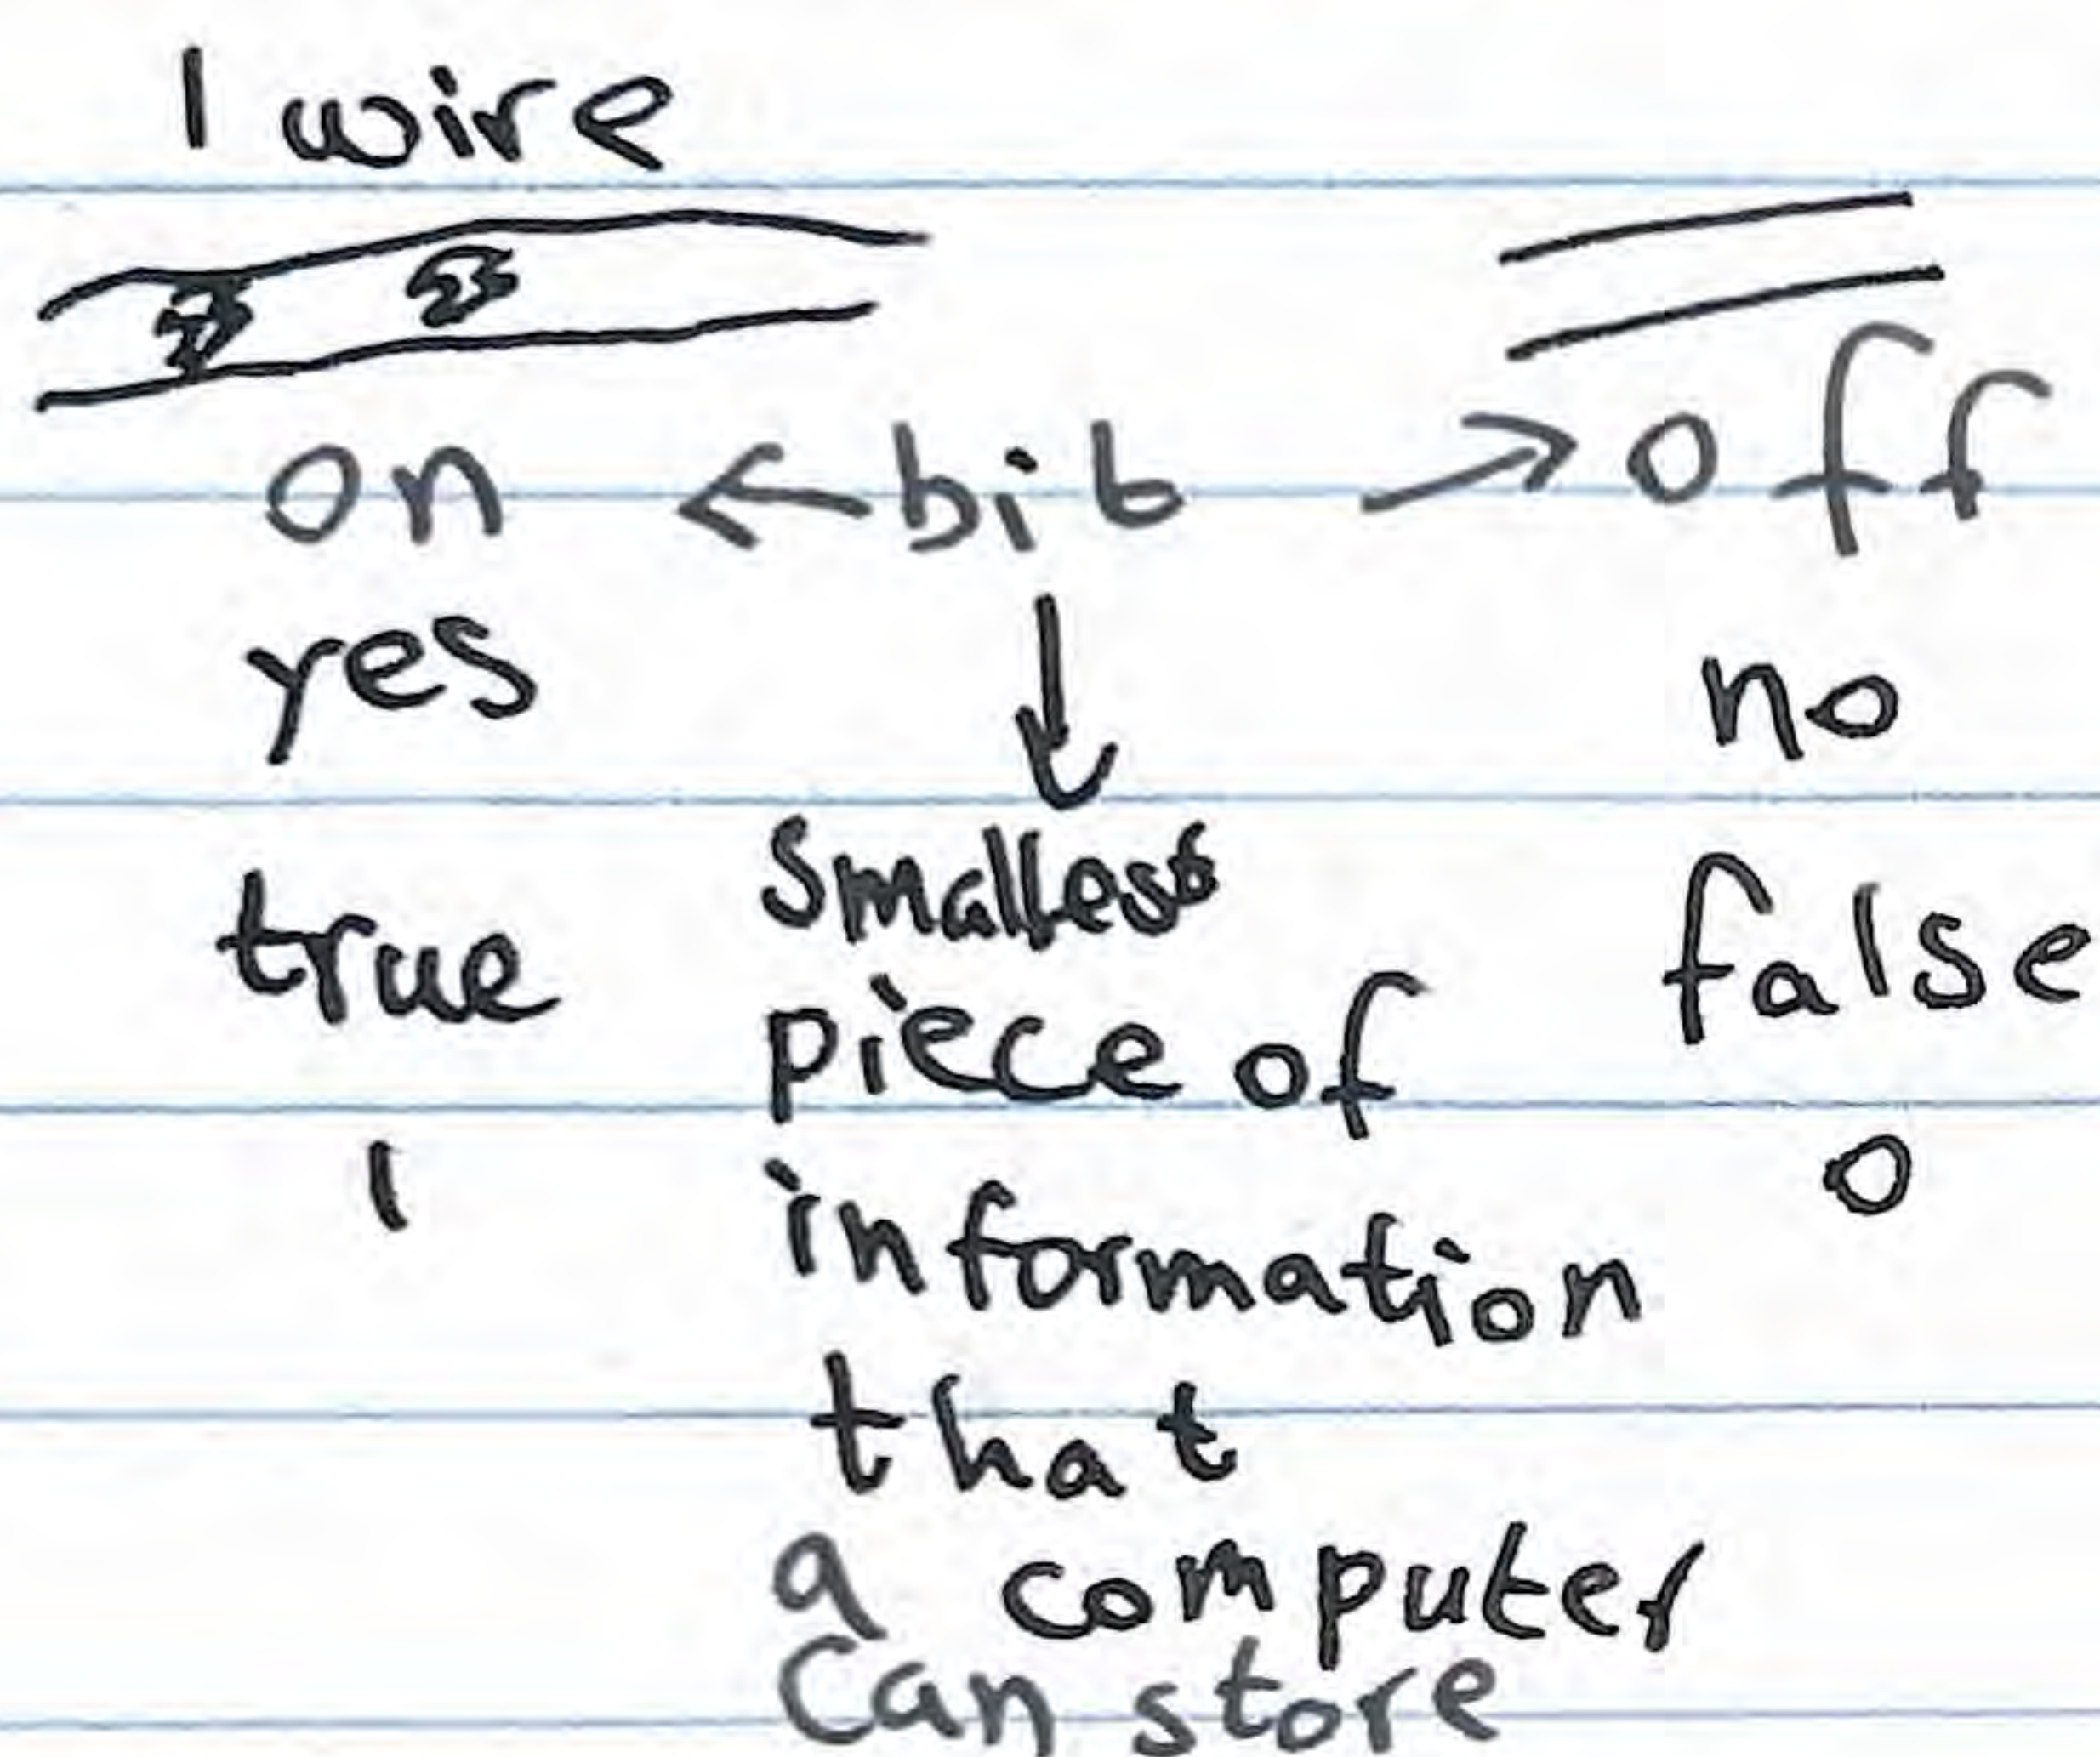 1 wire
on ← bit → off
yes no
true smallest false
piece of
1 information 0
that
a computer
can store